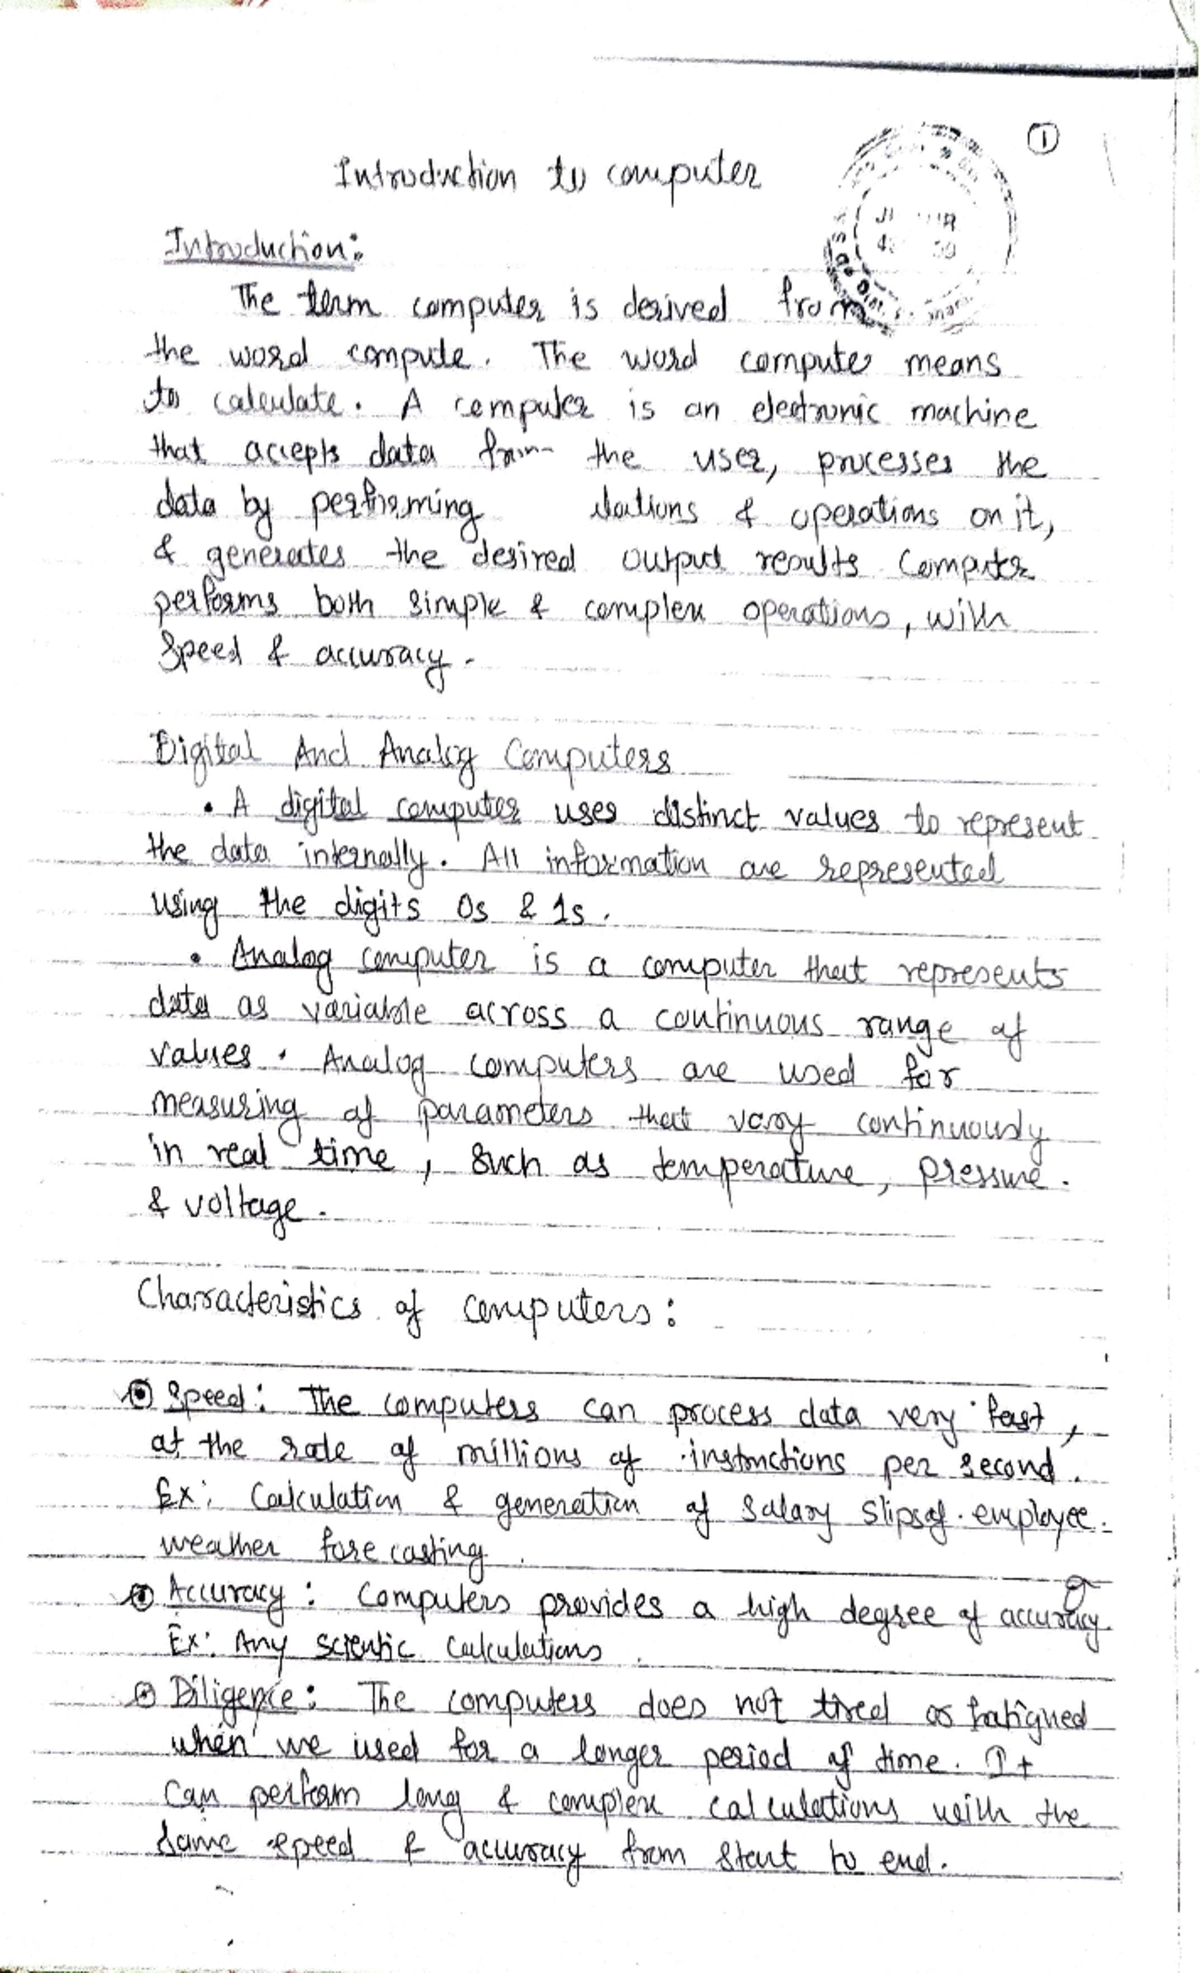 1
Introduction to computer
Introduction:
The term computer is derived from
the word compute. The word computer means
to calculate. A computer is an electronic machine
that accepts data from the user, processes the
data by performing lations & operations on it,
& generates the desired output results Computer
performs both simple & complex operations, with
Speed & accuracy.
Digital And Analog Computers
• A digital computer uses distinct values to represent
the data internally. All information are represented
using the digits 0s & 1s.
• Analog computer is a computer that represents
data as variable across a continuous range of
values. Analog computers are used for
measuring of parameters that vary continuously
in real time, such as temperature, pressure.
& voltage.
Characteristics of computers:
Speed: The computers can process data very fast,
at the rate of millions of instructions per second.
Ex: Calculation & generation of salary slips of employee.
weather forecasting.
Accuracy: Computers provides a high degree of accuracy.
Ex: Any scientic calculations.
Diligence: The computers does not tired or fatigued
when we used for a longer period of time. It
Can perform long & complex calculations with the
same speed & accuracy from start to end.